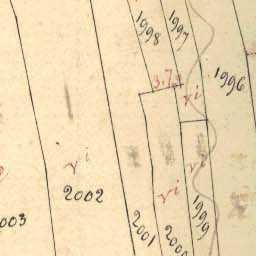 1998
1997
1996
3.7
vi
vi
vi
2002
2001
1999